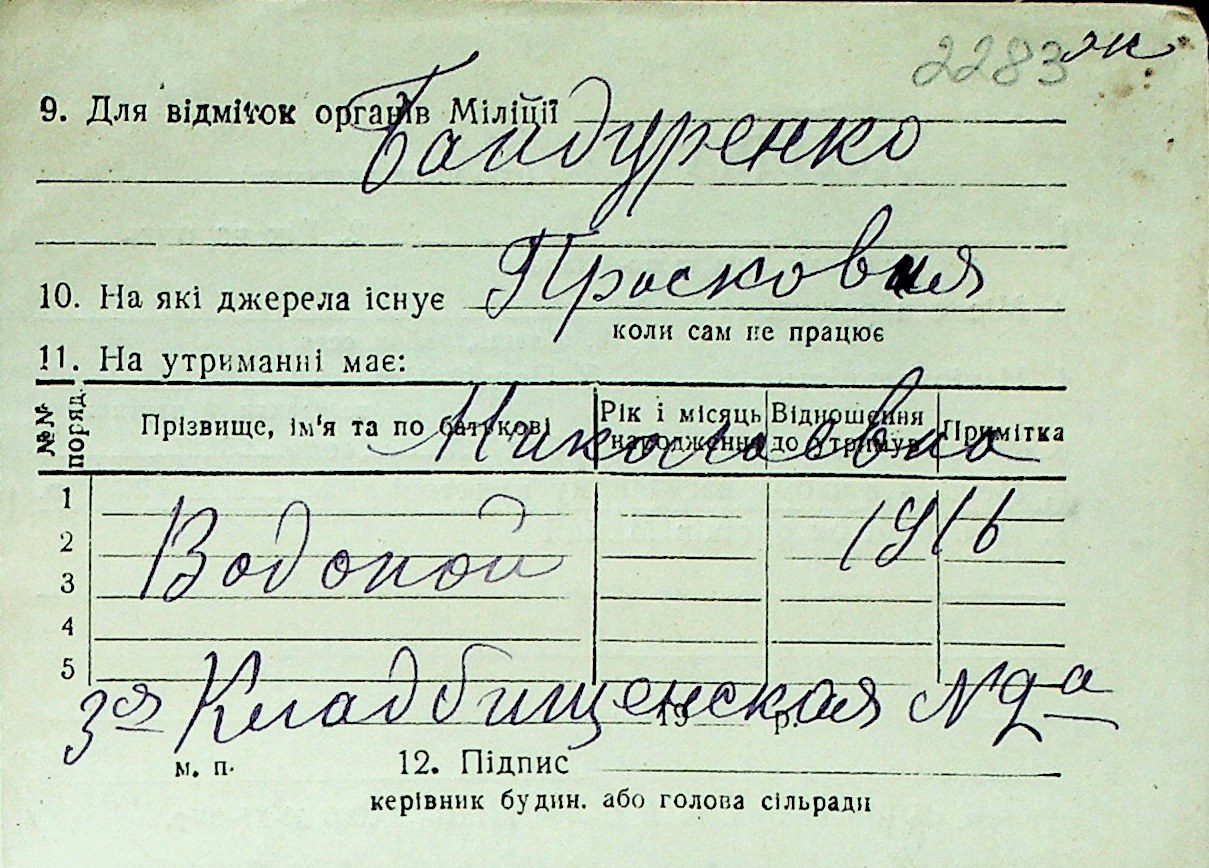 2283 як
9. Для відміток органів Міліції
Бандуренко
Прасковия
10. На які джерела існує
коли сам не працює
11. На утриманні має:
№№ поряд. Прізвище, ім'я та по батькові Рік і місяць народження Відношення до утримув. Примітка
Николаевна
1
2
3
4
5
Водопой 1916
3ья Кладбищенская № 9-а
19 р.
м. п. 12. Підпис
керівник будин. або голова сільради